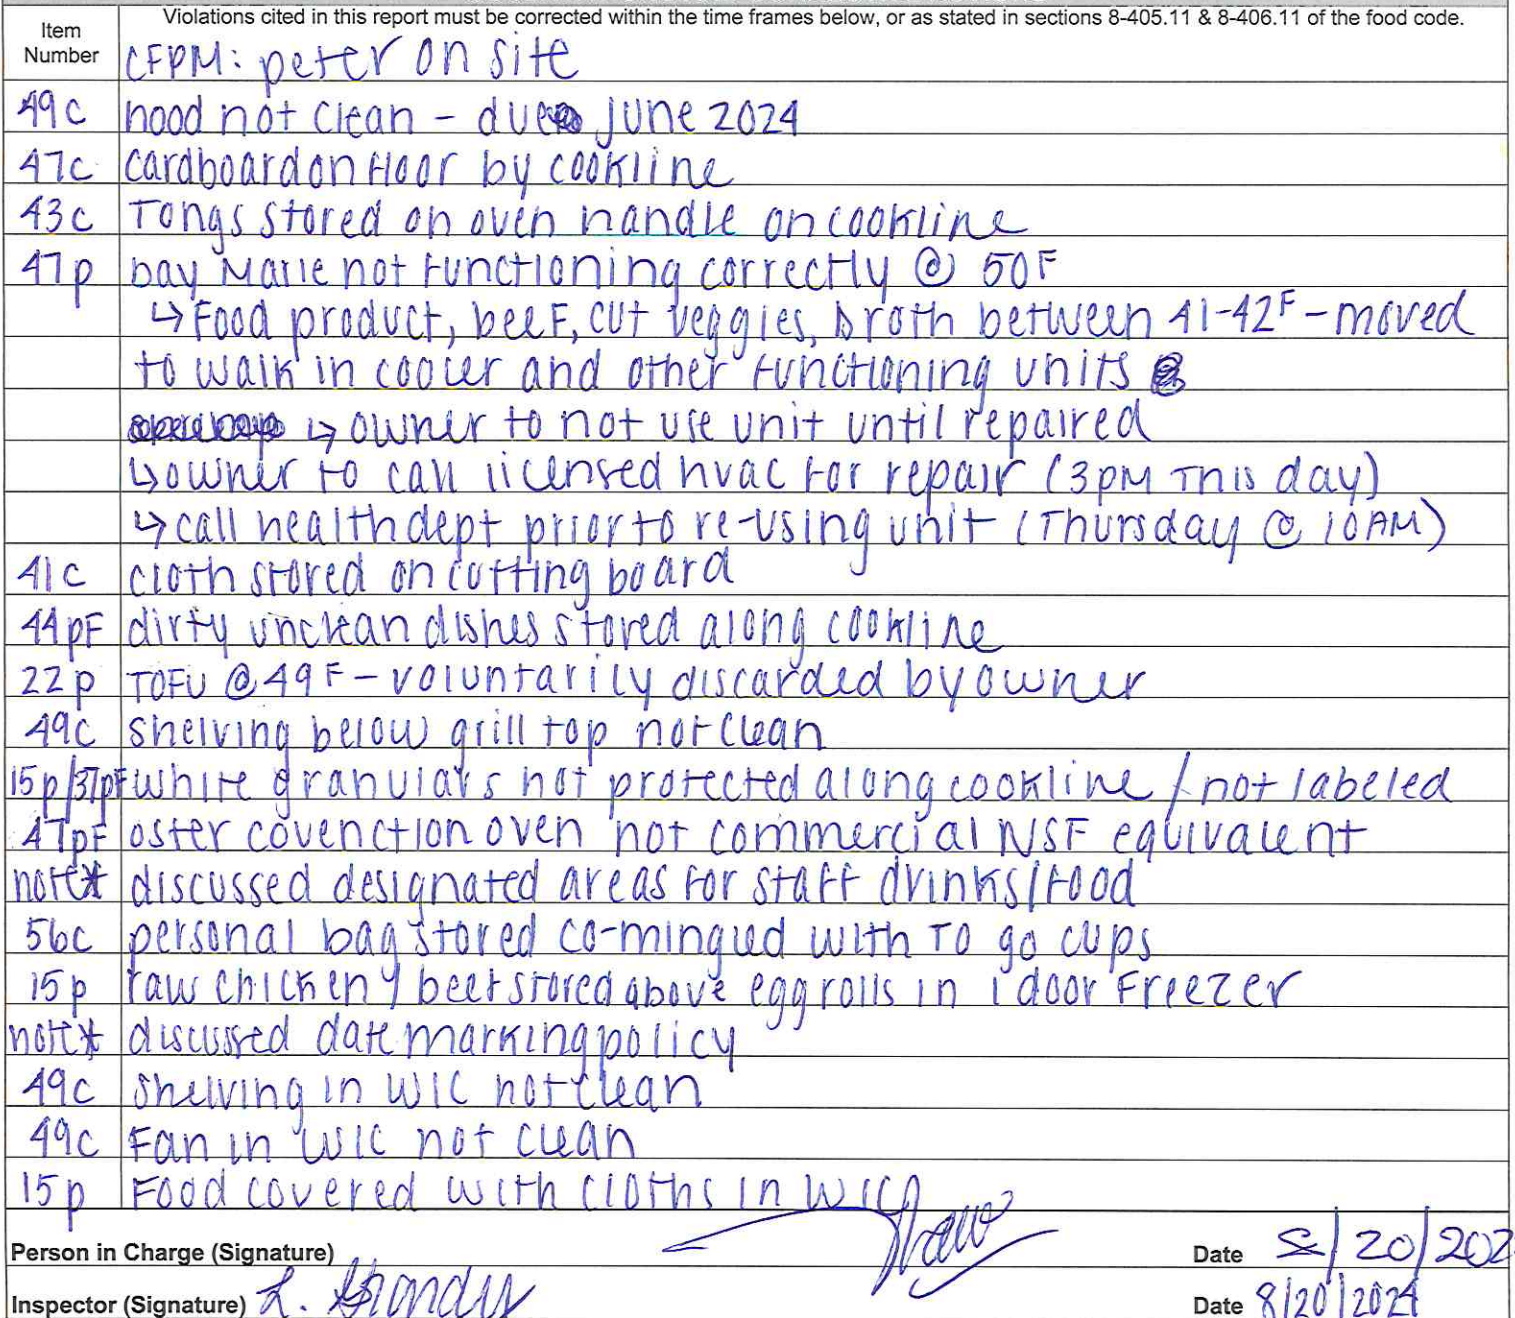 Violations cited in this report must be corrected within the time frames below, or as stated in sections 8-405.11 & 8-406.11 of the food code.
Item Number CFPM: peter on site
49c hood not clean - due June 2024
47c cardboard on floor by cookline
43c Tongs stored on oven handle on cookline
47p bay Marie not functioning correctly @ 50F
↳ Food product, beef, cut veggies, broth between 41-42F - moved
to walk in cooler and other functioning units
↳ owner to not use unit until repaired
↳ owner to call licensed hvac for repair (3pm This day)
↳ call health dept prior to re-using unit (Thursday @ 10AM)
41c cloth stored on cutting board
44pF dirty unclean dishes stored along cookline
22p TOFU @ 49F - voluntarily discarded by owner
49c shelving below grill top not clean
15p/37pF white granulars not protected along cookline / not labeled
47pF oster covenction oven not commercial NSF equivalent
note* discussed designated areas for staff drinks/food
56c personal bag stored co-mingled with TO go cups
15p raw chicken / beef stored above eggrolls in 1 door Freezer
note* discussed date marking policy
49c shelving in WIC not clean
49c Fan in WIC not clean
15p Food covered with cloths in WIC
Person in Charge (Signature) Date 8/20/202
Inspector (Signature) L. Date 8/20/2024